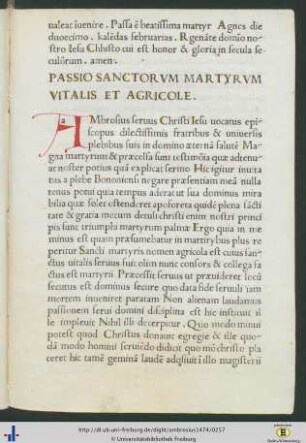 ualeat inuenire. Passa ē beatissima martyr Agnes die
duoecimo. kalēdas februarias. Rgenāte domio no
stro Iesu Chhisto cui est honor & gloria in secula se
culōrum. amen.
PASSIO SANCTORVM MARTYRVM
VITALIS ET AGRICOLE.
AMbrosius seruus Christi Iesu uocatus epi
scopus dilectissimis fratribus & uniuersis
plebibus suis in domino æternā salutē Ma
gna martyrum & præcelsa sunt testimōia quæ
noster potius quā explicat sermo Hic igitur inuita
tus a plebe Bononiensi negare præsentiam meā nulla
tenus potui quia tempus aderat ut sua dominus mira
bilia quæ solet ostendere aperta quidē plena sācti
tate & gratia mecum detulit christi enim nostri princi
pis sunc triumphi martyrum palmæ Ergo quia in me
minus est quam præsumebatur in martiribus plus re
peritur Sancti martyris nomen agricola est cuius san
ctus uitalis seruus fuit olim nunc consors & collega fa
ctus est martyrii Præcessit seruus ut prouideret locū
secutus est dominus securus quod data fide seruuli iam
mortem inueniret paratam Non alienam laudamus
passionem serui domini disciplina est hic instituit il
le impleuit Nihil illi decerpitur. Quo modo
potest quod Christus donauit egregie & ille quo
dā modo homini seruiēdo didicit quomō christo pla
ceret hic tamē geminā laudē adquiuit illo magisterii
http://dl.ub.uni-freiburg.de/diglit/ambrosius1474/0257
© Universitätsbibliothek Freiburg